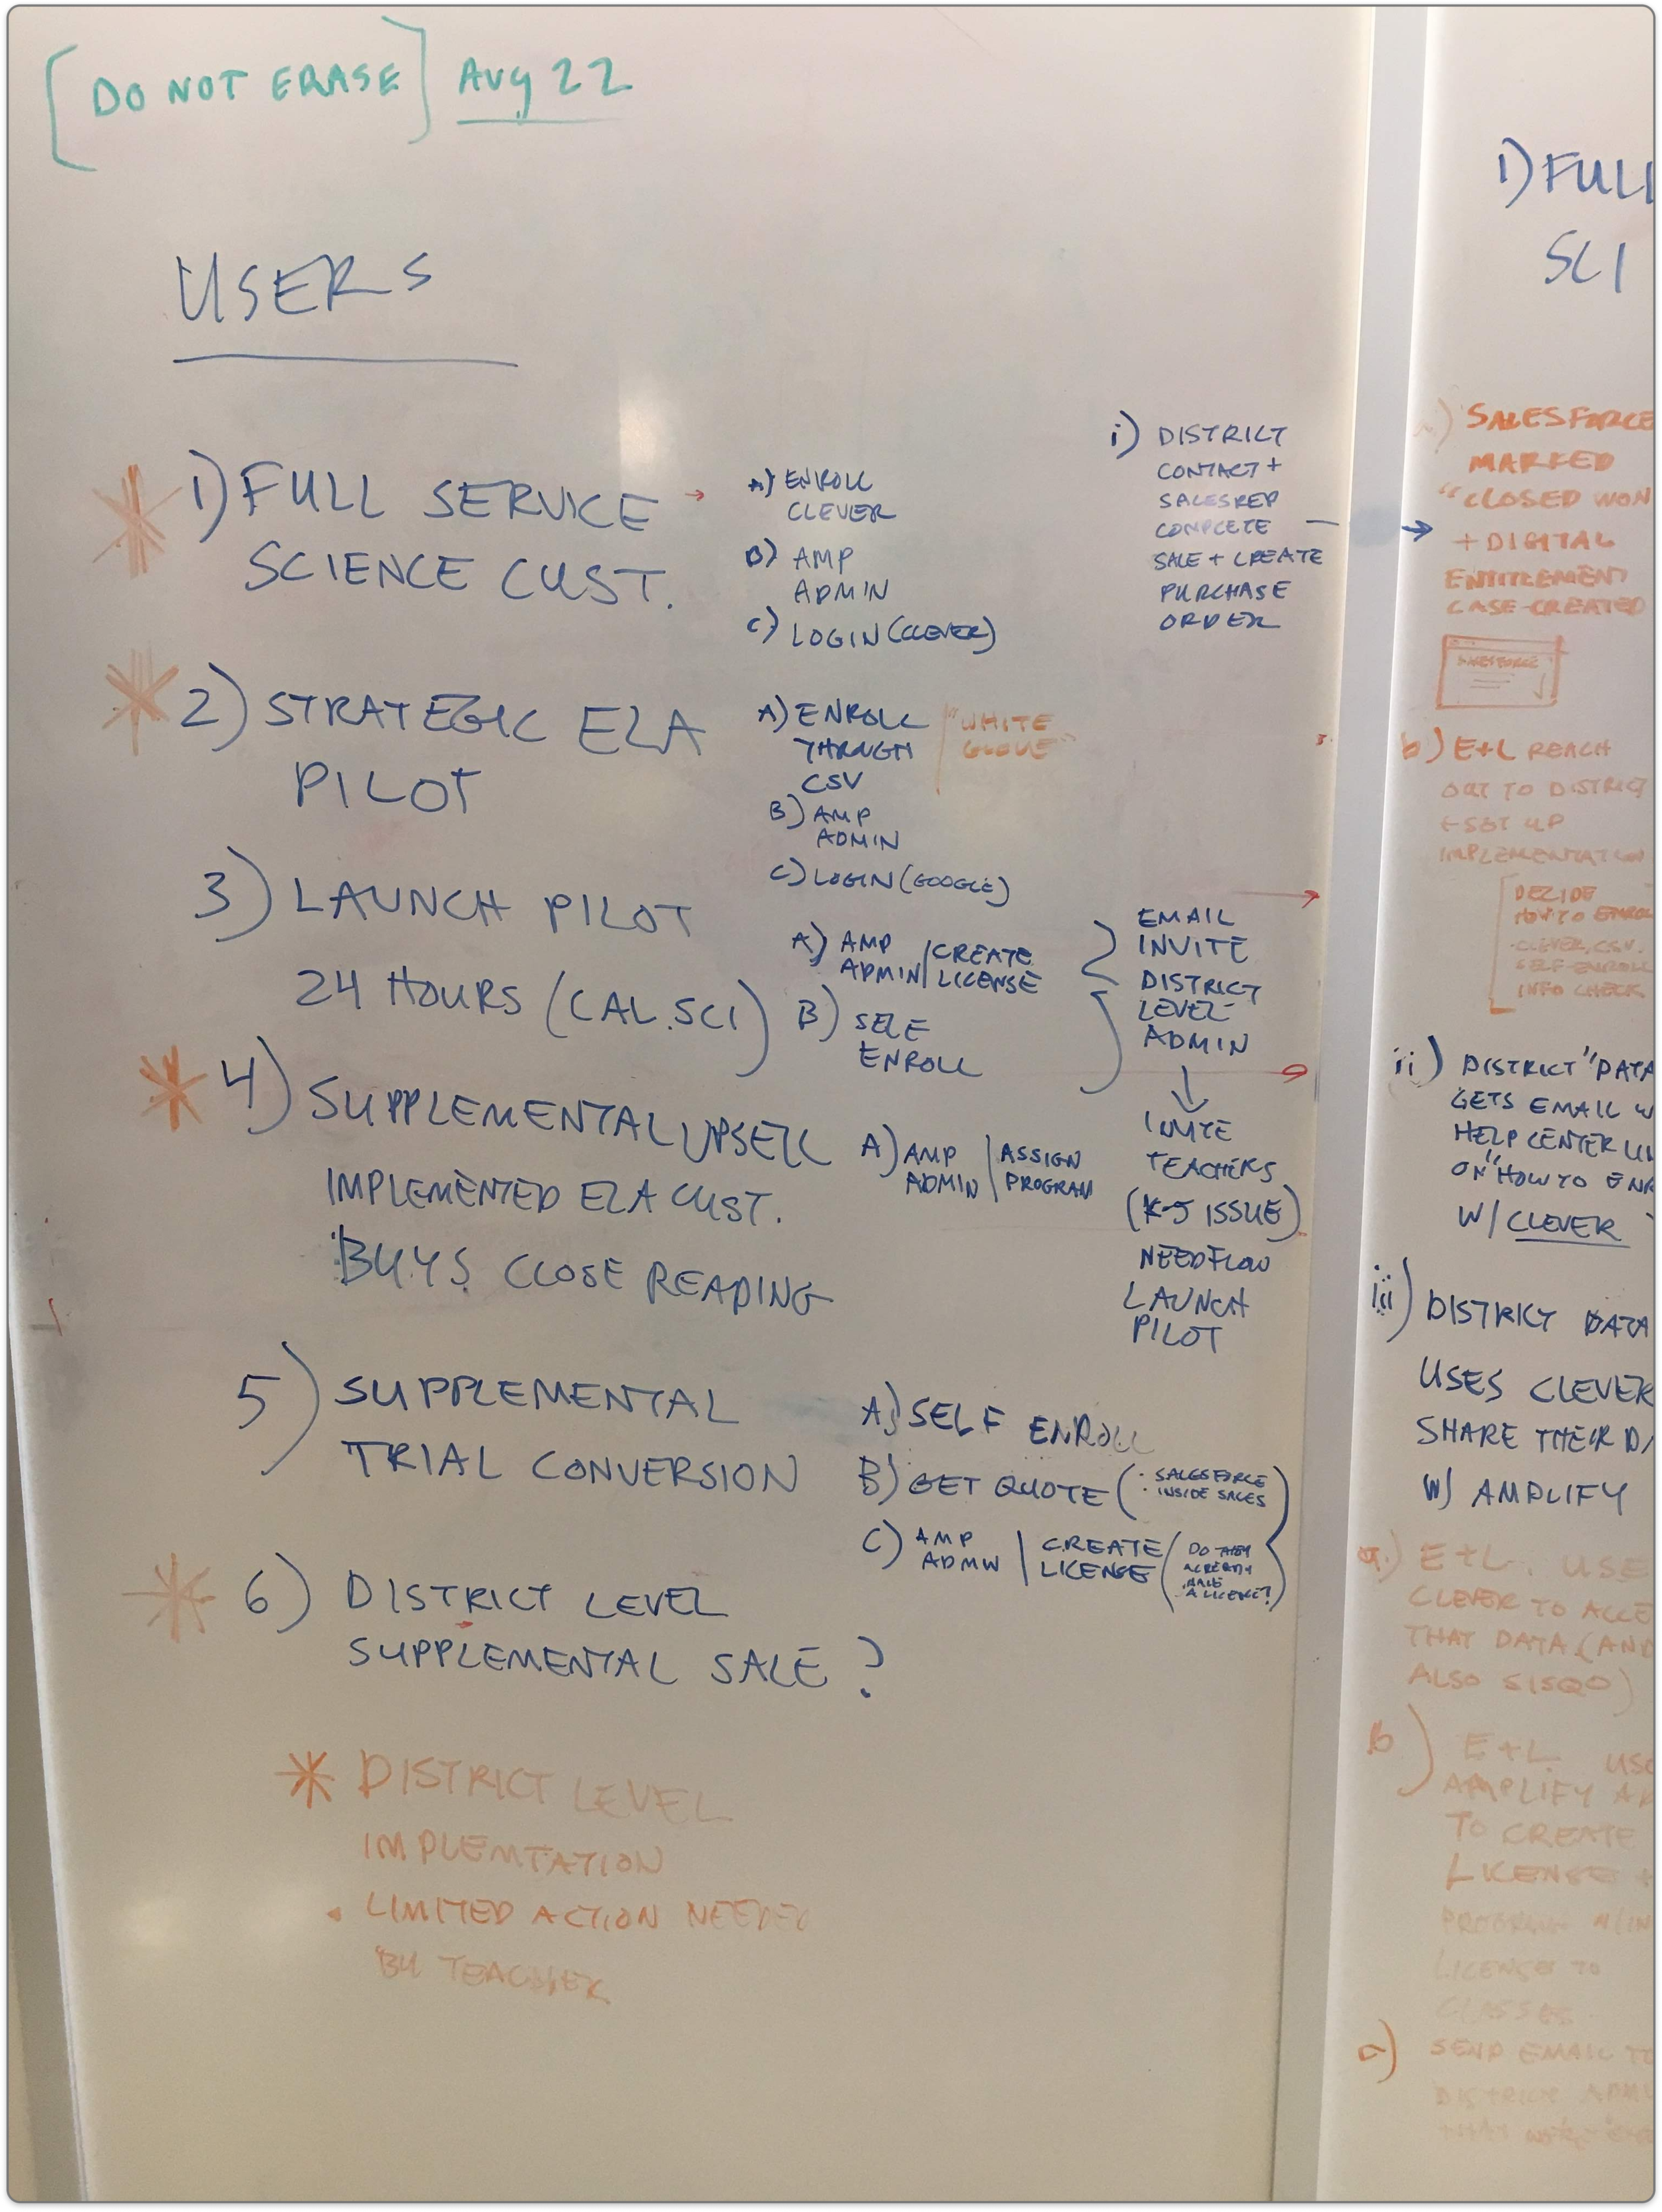 [DO NOT ERASE] Aug 22
USERS
1) FULL SERVICE
SCIENCE CUST.
A) ENROLL
CLEVER
B) AMP
ADMIN
C) LOGIN (CLEVER)
i) DISTRICT
CONTACT +
SALES REP
COMPLETE
SALE + CREATE
PURCHASE
ORDER
2) STRATEGIC ELA
PILOT
A) ENROLL
THROUGH
CSV
"WHITE
GLOVE"
B) AMP
ADMIN
C) LOGIN (GOOGLE)
3) LAUNCH PILOT
24 HOURS (CAL.SCI)
A) AMP
ADMIN / CREATE
LICENSE
B) SELF
ENROLL
EMAIL
INVITE
DISTRICT
LEVEL
ADMIN
INVITE
TEACHERS
(K-5 ISSUE)
NEED FLOW
LAUNCH
PILOT
4) SUPPLEMENTAL UPSELL
IMPLEMENTED ELA CUST.
BUYS CLOSE READING
A) AMP
ADMIN | ASSIGN
PROGRAM
5) SUPPLEMENTAL
TRIAL CONVERSION
A) SELF ENROLL
B) GET QUOTE ( · SALESFORCE
· INSIDE SALES
C) AMP
ADMIN | CREATE
LICENSE ( DO THEY
ALREADY
HAVE
A LICENSE? )
6) DISTRICT LEVEL
SUPPLEMENTAL SALE ?
* DISTRICT LEVEL
IMPLEMTATION
• LIMITED ACTION NEEDED
BY TEACHER
1) FULL
SCI
a) SALESFORCE
MARKED
"CLOSED WON
+ DIGITAL
ENTITLEMENT
CASE-CREATED
SALESFORCE
b) E+L REACH
OUT TO DISTRICT
+ SET UP
IMPLEMENTATION
DECIDE
HOW TO ENROLL
· CLEVER, CSV.
SELF-ENROLL
INFO CHECK
ii) DISTRICT "DATA
GETS EMAIL W
HELP CENTER
ON "HOW TO ENR
W/ CLEVER
iii) DISTRICT DATA
USES CLEVER
SHARE THEIR DA
W/ AMPLIFY
a.) E+L. USE
CLEVER TO ACCE
THAT DATA (AND
ALSO SISQO)
b) E+L USE
AMPLIFY
TO CREATE
LICENSE +
PROGRAM W/IN
LICENSE TO
CLASSES
SEND EMAIL TO
DISTRICT ADMI